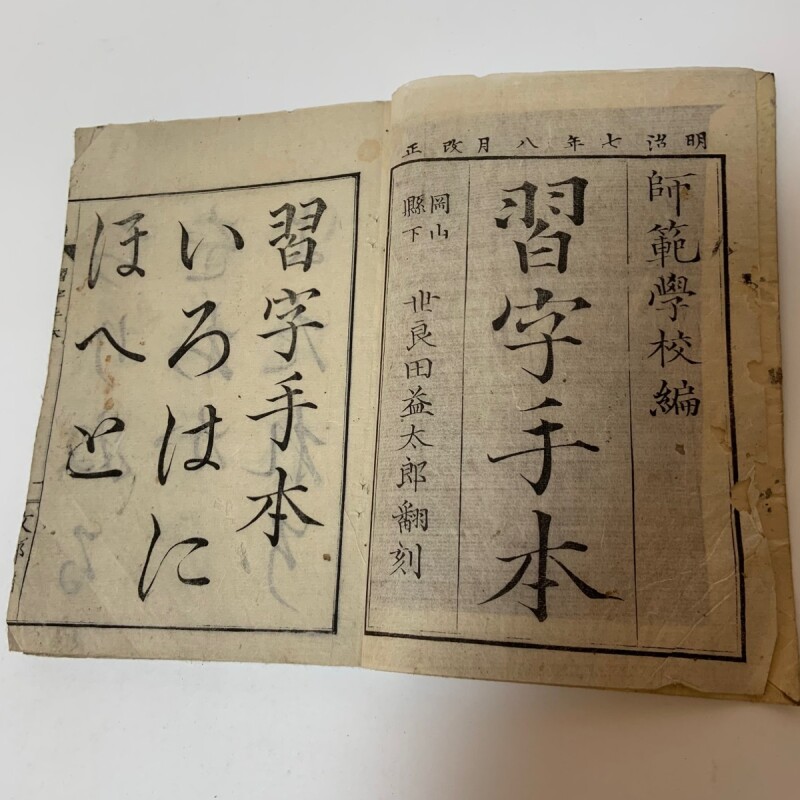 明治七年八月改正
師範學校編
習字手本
岡山
縣下
世良田益太郎翻刻
習字手本
いろはに
ほへと
習字手本